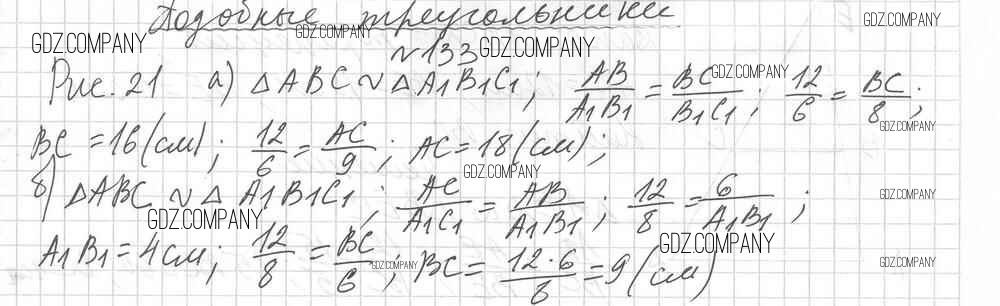 Подобные треугольники GDZ.COMPANY
GDZ.COMPANY
GDZ.COMPANY №133 GDZ.COMPANY
Рис. 21 а) △ABC ~ △A1B1C1; AB/A1B1 = BC/B1C1; 12/6 = BC/8; GDZ.COMPANY
BC = 16 (см); 12/6 = AC/9; AC = 18 (см); GDZ.COMPANY
GDZ.COMPANY
б) △ABC ~ △A1B1C1; AC/A1C1 = AB/A1B1; 12/8 = 6/A1B1; GDZ.COMPANY
GDZ.COMPANY GDZ.COMPANY
A1B1 = 4 см; 12/8 = BC/6; BC = 12·6/8 = 9 (см) GDZ.COMPANY
GDZ.COMPANY